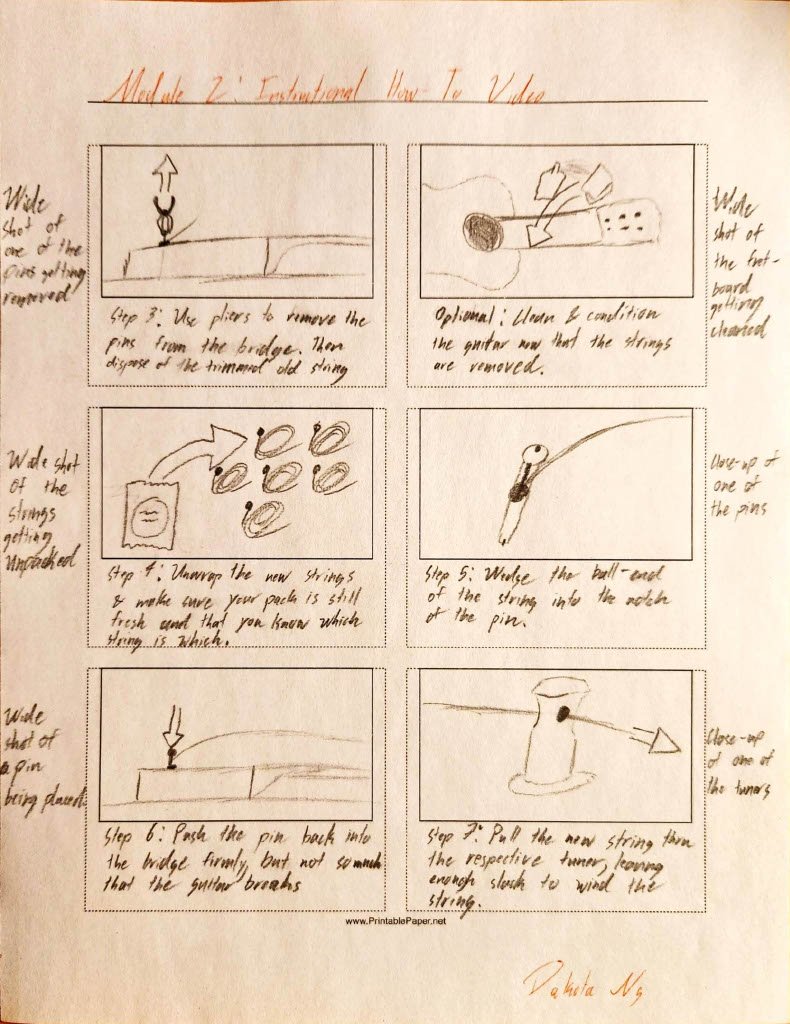 Module 2: Instructional How-To Video
Wide
shot of
one of the
pins getting
removed
Step 3: Use pliers to remove the
pins from the bridge. Then
dispose of the trimmed old string
Optional: Clean & condition
the guitar now that the strings
are removed.
Wide
shot of
the fret-
board
getting
cleaned
Wide shot
of the
strings
getting
unpacked
Step 4: Unwrap the new strings
& make sure your pack is still
fresh and that you know which
string is which.
Step 5: Wedge the ball-end
of the string into the notch
of the pin.
Close-up of
one of
the pins
Wide
shot of
a pin
being placed
Step 6: Push the pin back into
the bridge firmly, but not so much
that the guitar breaks
Step 7: Pull the new string thru
the respective tuner, leaving
enough slack to wind the
string.
Close-up
of one of
the tuners
www.PrintablePaper.net
Dakota Ng